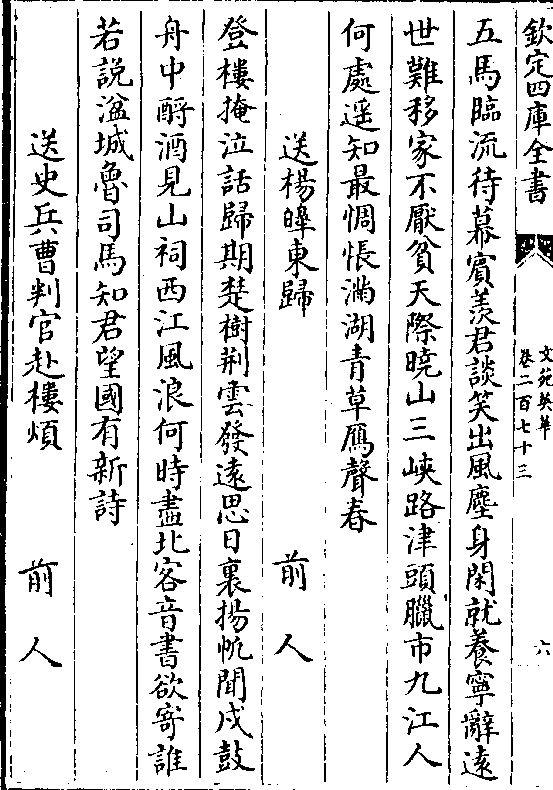 欽定四庫全書
文苑英華
卷二百七十三
六
五馬臨流待幕賓羨君談笑出風塵身閑就養寧辭遠
世難移家不厭貧天際曉山三峽路津頭臘市九江人
何處遥知最惆悵滿湖青草鴈聲春
送楊皥東歸 前人
登樓掩泣話歸期楚樹荆雲發遠思日裏揚帆聞戍鼓
舟中酹酒見山祠西江風浪何時盡北客音書欲寄誰
若説湓城魯司馬知君望國有新詩
送史兵曹判官赴樓煩 前人